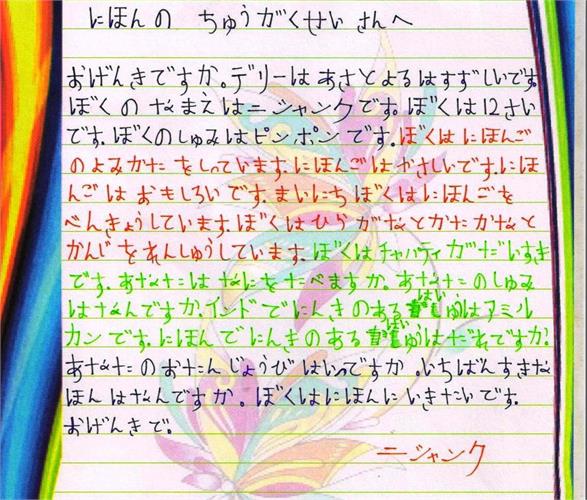 にほんの ちゅうがくせい さんへ
おげんきですか。デリーは あさと よるは すずしいです。
ぼくの なまえは ニシャンクです。ぼくは 12さい
です. ぼくの しゅみは ピンポンです. ぼくは にほんご
の よみかた を しっています. にほんごは やさしいです. にほ
んごは おもしろいです. まいにち ぼくは にほんごを
べんきょうしています. ぼくは ひらがなと かたかなと
かんじを れんしゅうしています. ぼくは チャパティが だいすき
です. あなたは なにを たべますか. あなたの しゅみ
は なんですか. インドで にんきの ある はいゆうは アミル
カンです. にほんで にんきの ある はいゆうは だれですか.
あなたの おたんじょうびは いつですか. いちばん すきな
ほんは なんですか. ぼくは にほんに いきたいです.
おげんきで.
ニシャンク